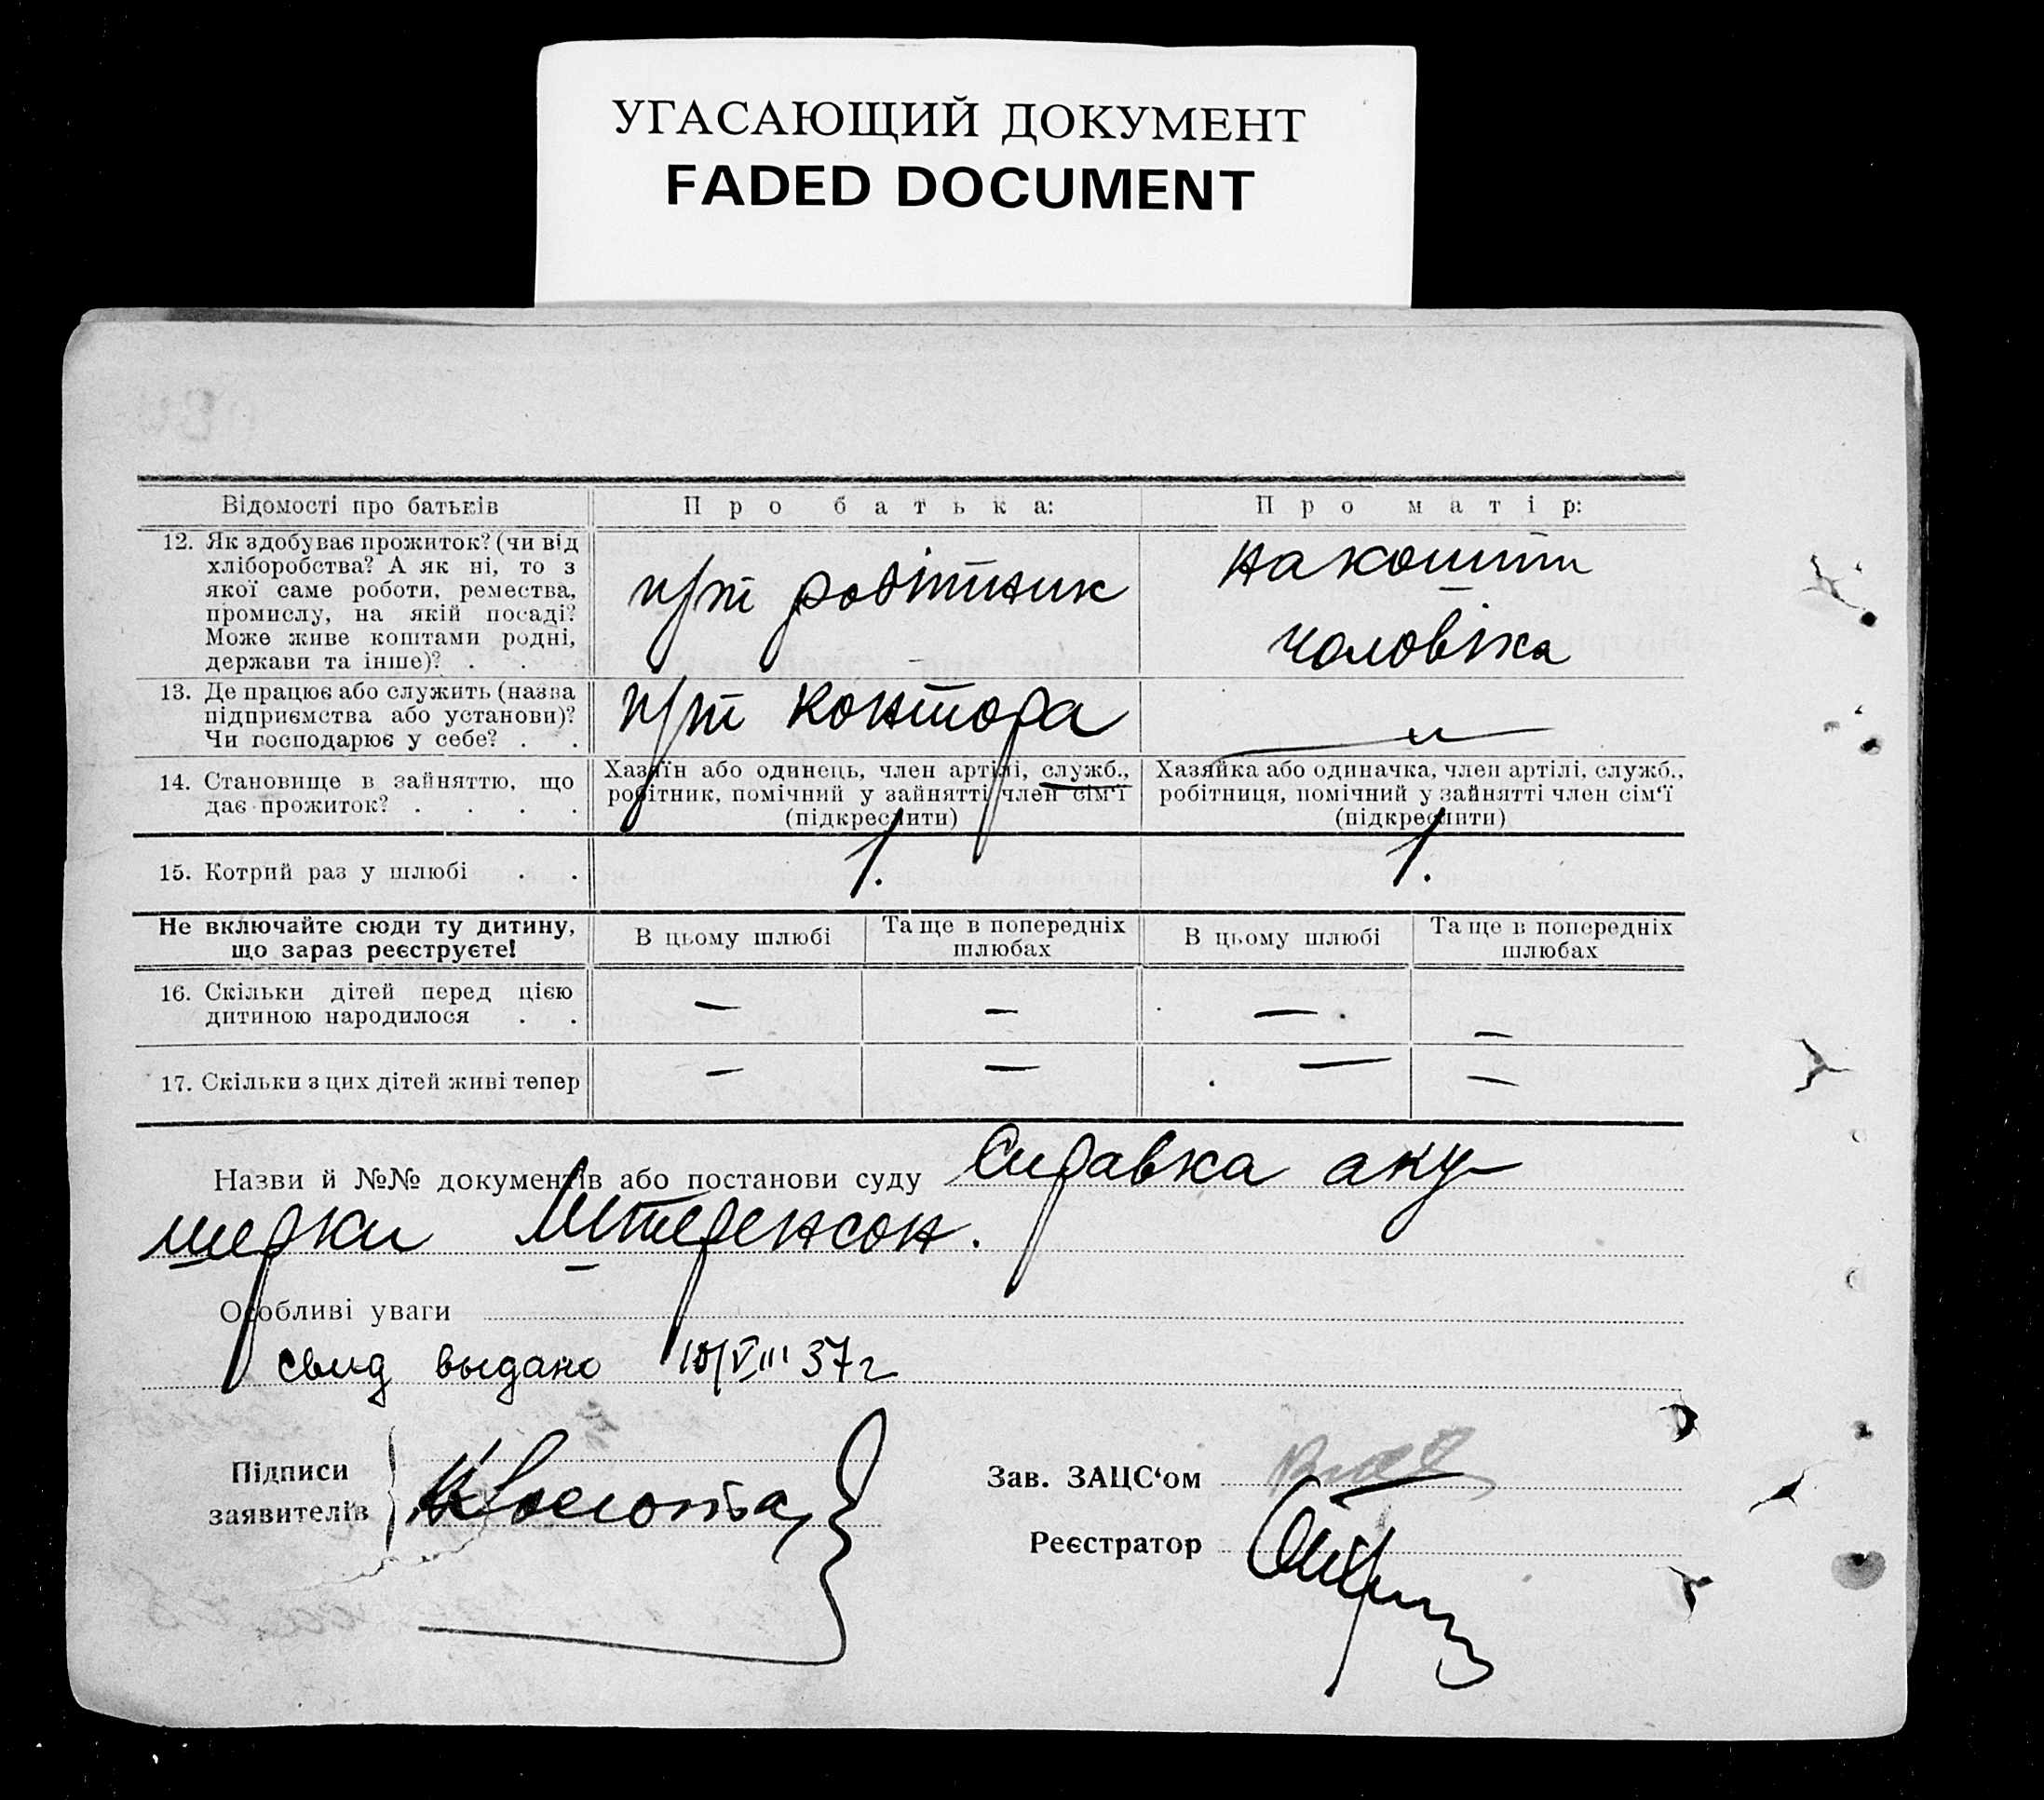 УГАСАЮЩИЙ ДОКУМЕНТ
FADED DOCUMENT
Відомості про батьків
Про батька:
Про матір:
12. Як здобуває прожиток? (чи від
хліборобства? А як ні, то з
якої саме роботи, ремества,
промислу, на якій посаді?
Може живе коштами родні,
держави та інше)? . .
п/т робітник
на кошти
чоловіка
13. Де працює або служить (назва
підприємства або установи)?
Чи господарює у себе? . .
п/т контора
14. Становище в зайняттю, що
дає прожиток? . . . .
Хазяїн або одинець, член артілі, служб.,
робітник, помічний у зайнятті член сім'ї
(підкреслити)
Хазяйка або одиначка, член артілі, служб.,
робітниця, помічний у зайнятті член сім'ї
(підкреслити)
15. Котрий раз у шлюбі . .
1.
1.
Не включайте сюди ту дитину,
що зараз реєструєте!
В цьому шлюбі
Та ще в попередніх
шлюбах
В цьому шлюбі
Та ще в попередніх
шлюбах
16. Скільки дітей перед цією
дитиною народилося . .
— — — —
17. Скільки з цих дітей живі тепер
— — — —
Назви й №№ документів або постанови суду Справка аку-
шерки Штеренсон.
Особливі уваги
свид выдано 10/VIII 37 г
Підписи
заявителів
Зав. ЗАЦС'ом
Реєстратор